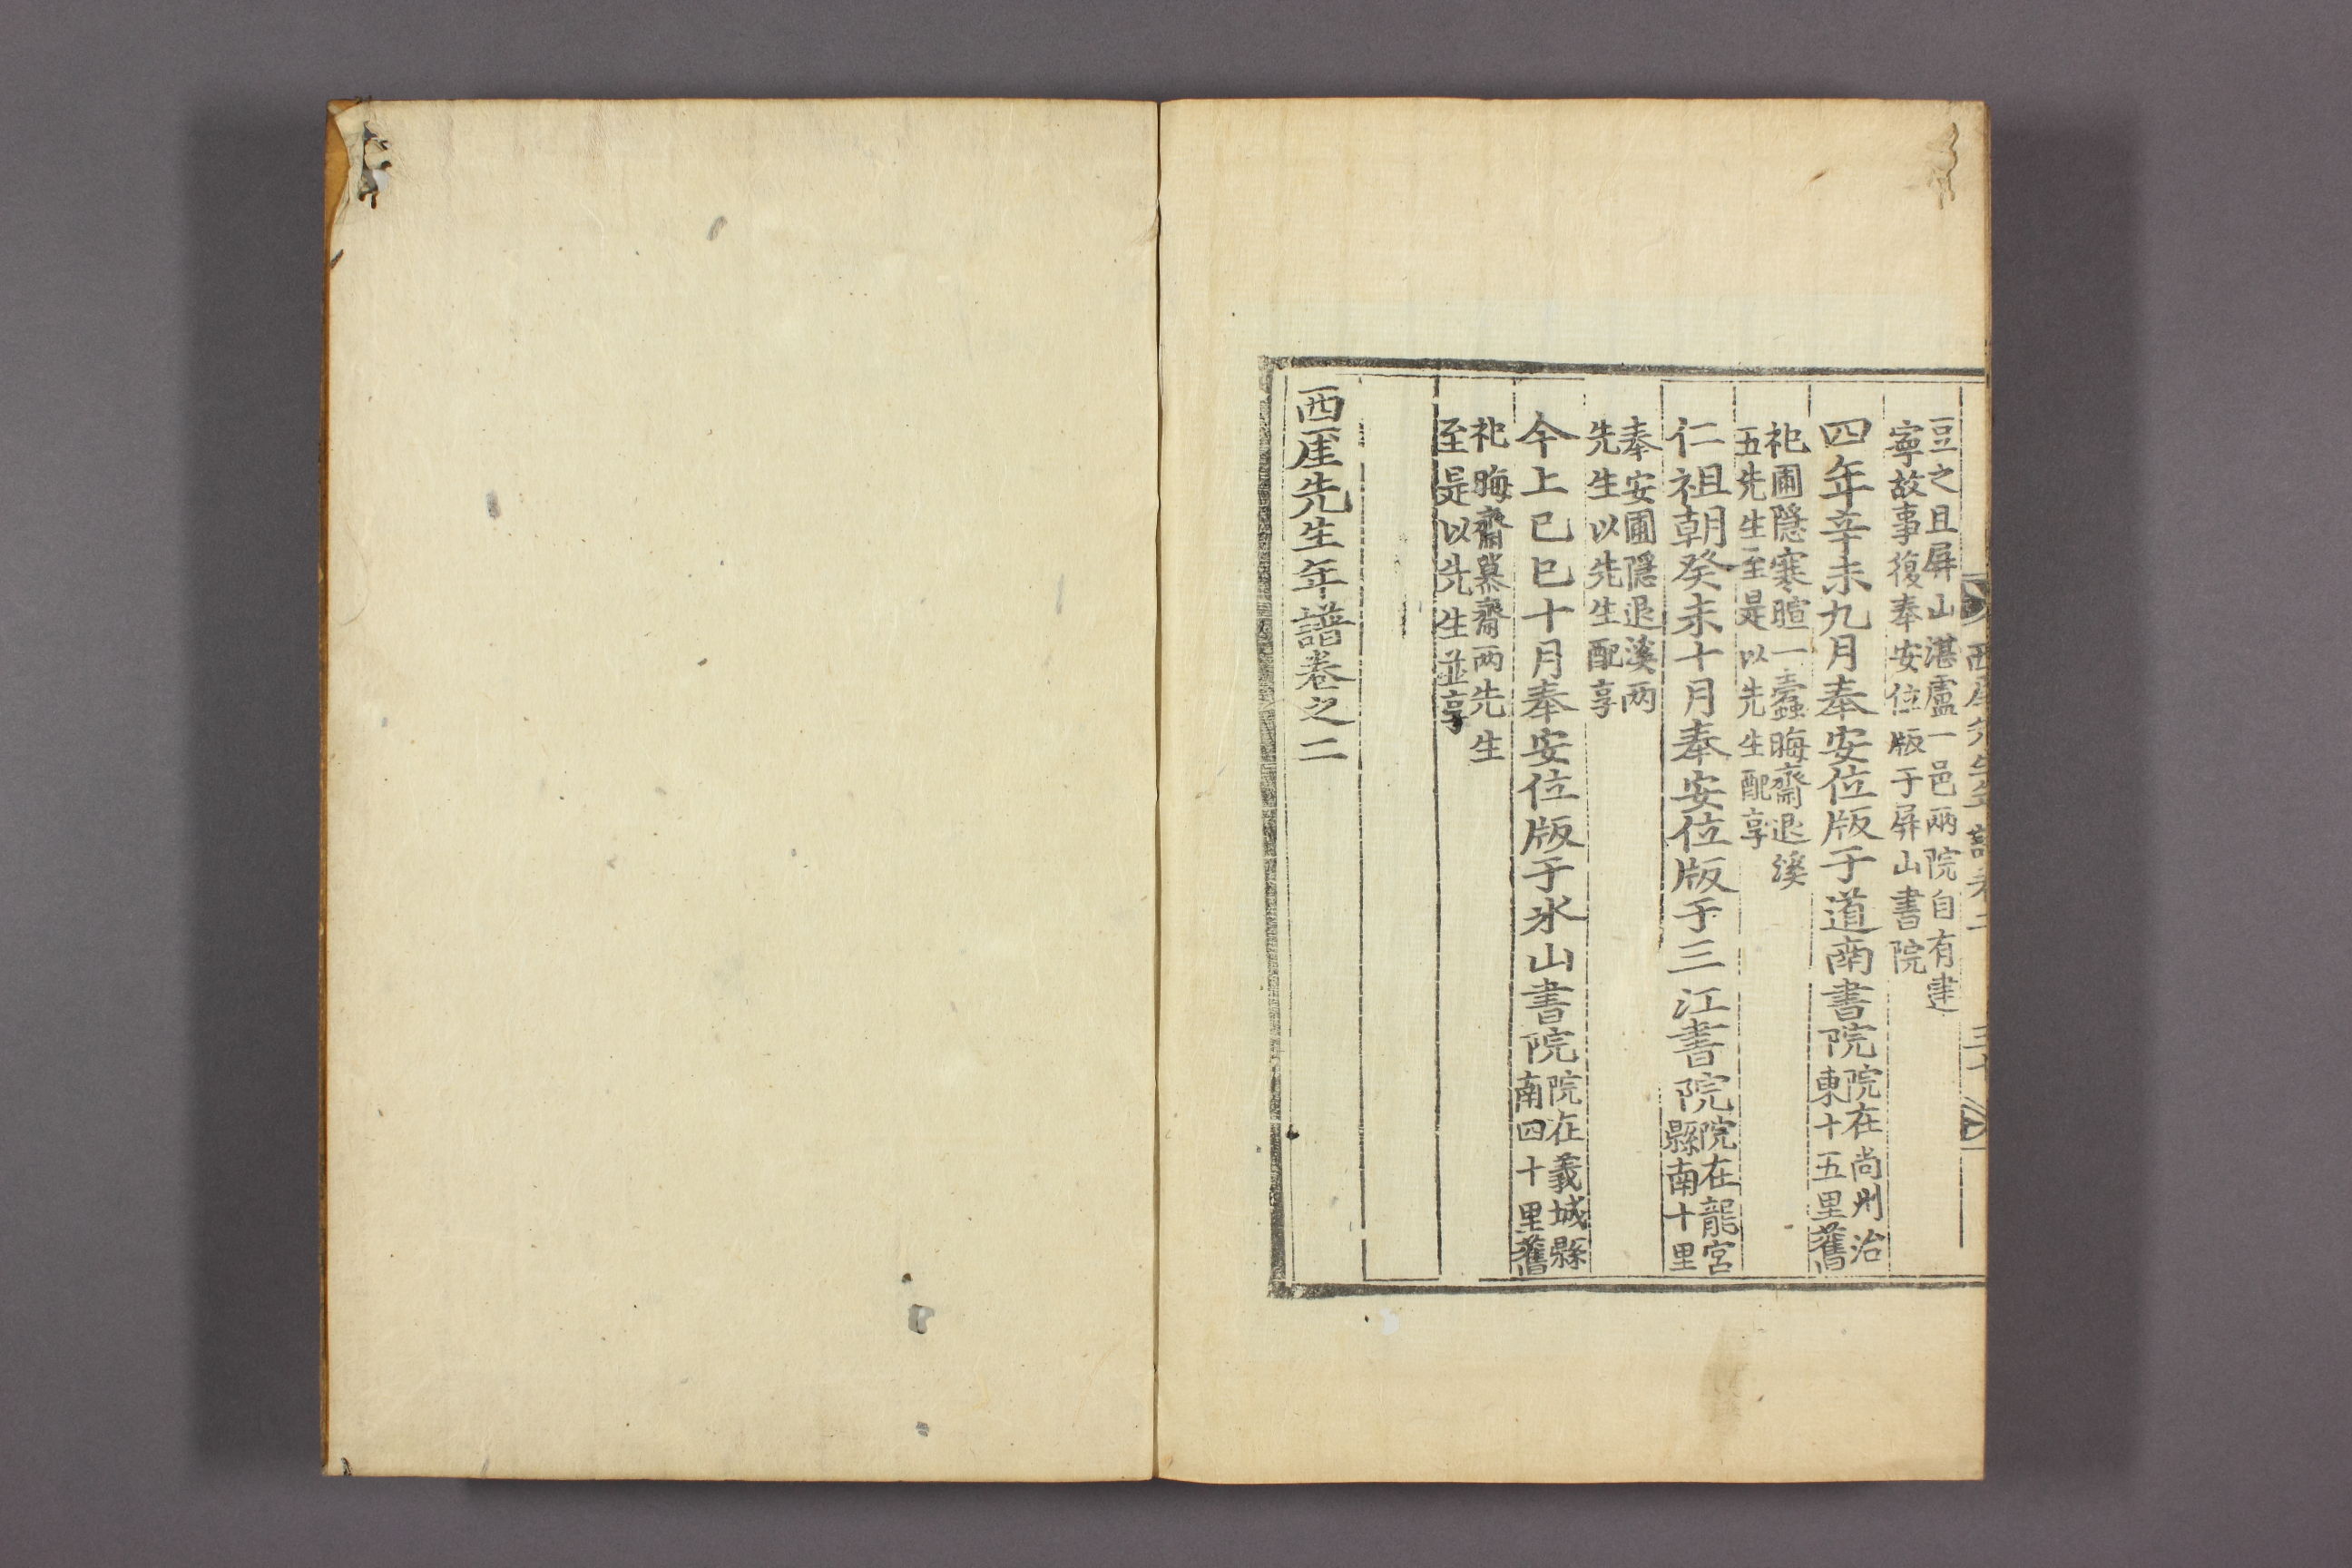 豆之且屛山湛盧一邑兩院自有建
寧故事復奉安位版于屛山書院
四年辛未九月奉安位版于道南書院院在尙州治
東十五里舊
祀圃隱寒暄一蠹晦齋退溪
五先生至是以先生配享
仁祖朝癸未十月奉安位版于三江書院院在龍宮
縣南十里
奉安圃隱退溪两
先生以先生配享
今上己巳十月奉安位版于氷山書院院在義城縣
南四十里舊
祀晦齋慕齋两先生
至是以先生並享
西厓先生年譜卷之二